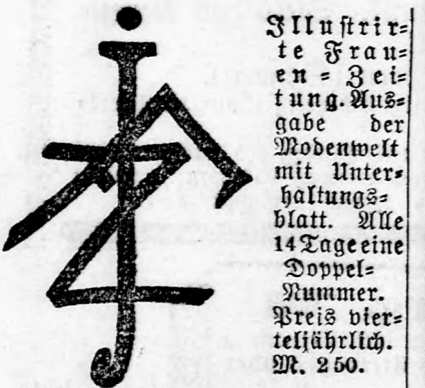 Illustrir=
te Frau=
en = Zei=
tung. Aus=
gabe der
Modenwelt
mit Unter=
haltungs=
blatt. Alle
14 Tage eine
Doppel=
Nummer.
Preis vier=
teljährlich.
M. 2 50.